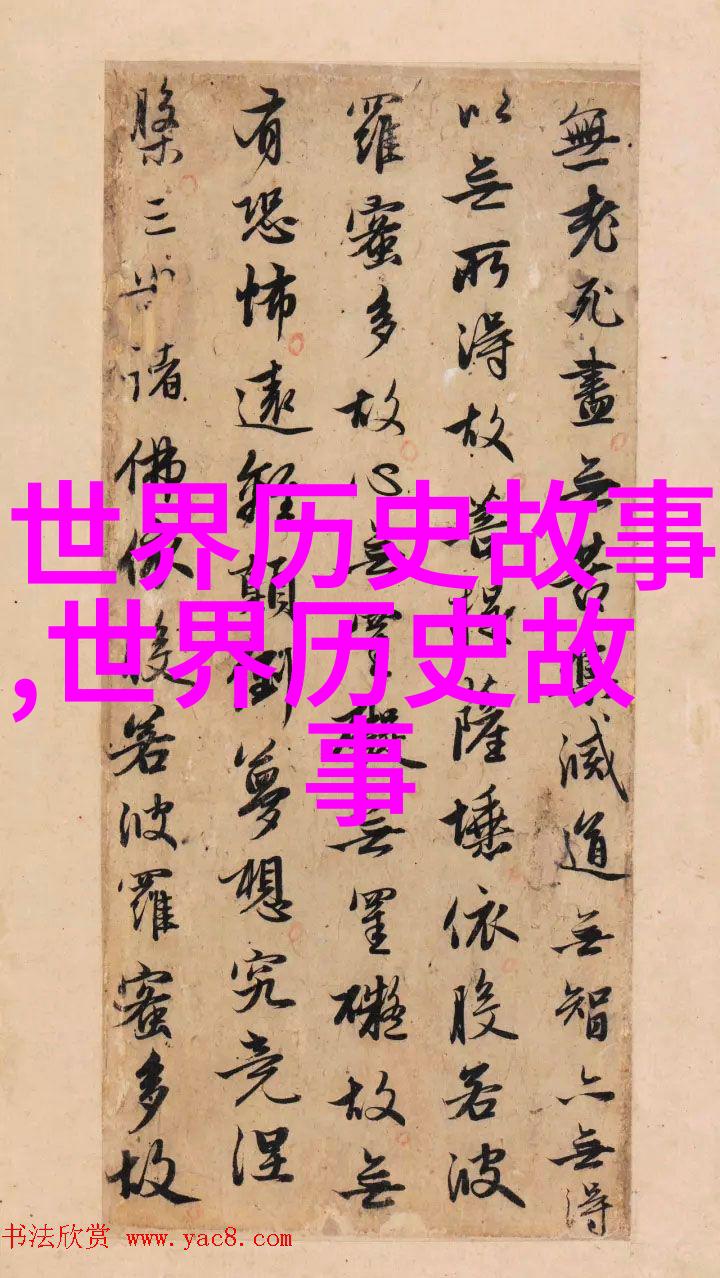 無老死盡无苦集滅道无智亦无得
以无所得故菩提薩埵依般若波
羅蜜多故心无罣礙无罣礙故无
有恐怖遠離顛倒夢想究竟涅
槃三世諸佛依般若波羅蜜多故
世界历史故事
,世界历史故
事
书法欣赏 www.yac8.com